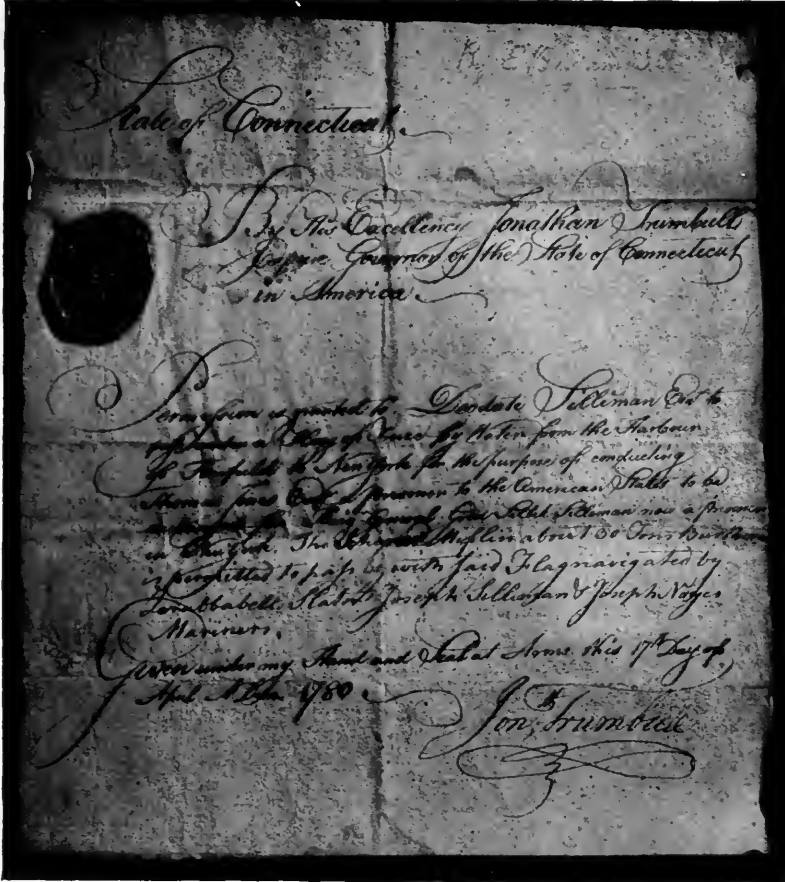 State of Connecticut.
By His Excellency Jonathan Trumbull
Esquire Governor of the State of Connecticut
in America
Permission is granted to Deodate Silliman Esqr to
a Flag of Truce by Water from the Harbour
of Fairfield to New York for the purpose of conducting
Thomas Jones Esqr a prisoner to the American States to be
for Brig General Gold Selleck Silliman now a prisoner
in New York. The Schooner Mifflin about 30 Tons Burthen
is permitted to pass with said Flag navigated by
Zerubbabell Slator Joseph Silliman & Joseph
Mariners.
Given under my Hand and Seal at Arms this 17th Day of
April A. Dom. 1780
Jonth Trumbull